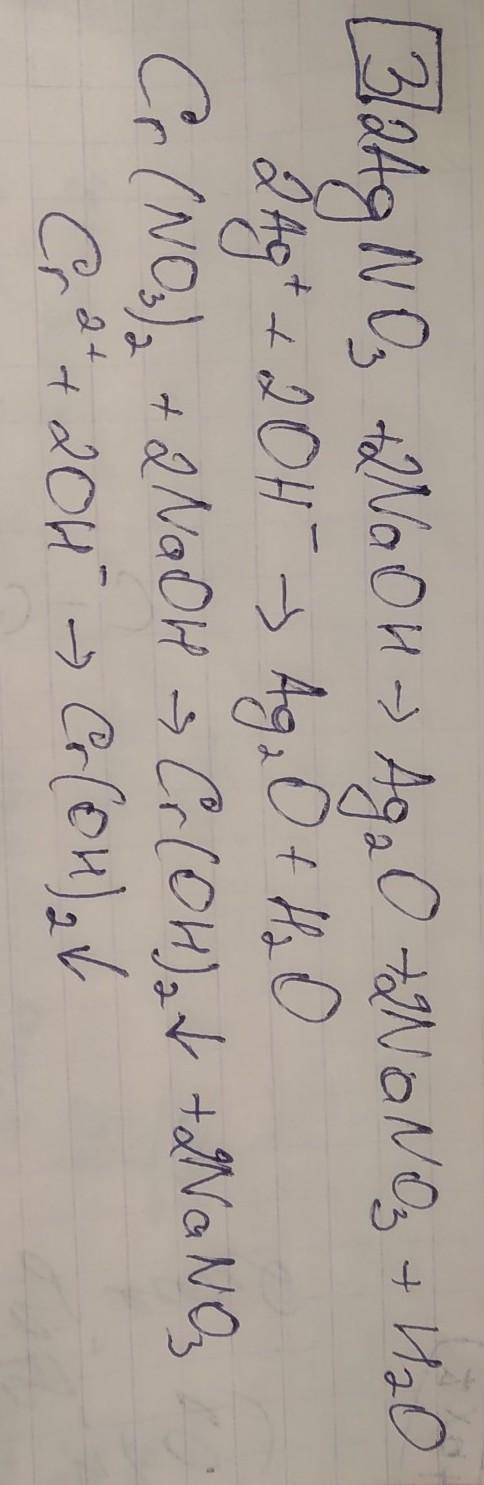 3. 2AgNO₃ + 2NaOH → Ag₂O + 2NaNO₃ + H₂O
2Ag⁺ + 2OH⁻ → Ag₂O + H₂O
Cr(NO₃)₂ + 2NaOH → Cr(OH)₂↓ + 2NaNO₃
Cr²⁺ + 2OH⁻ → Cr(OH)₂↓